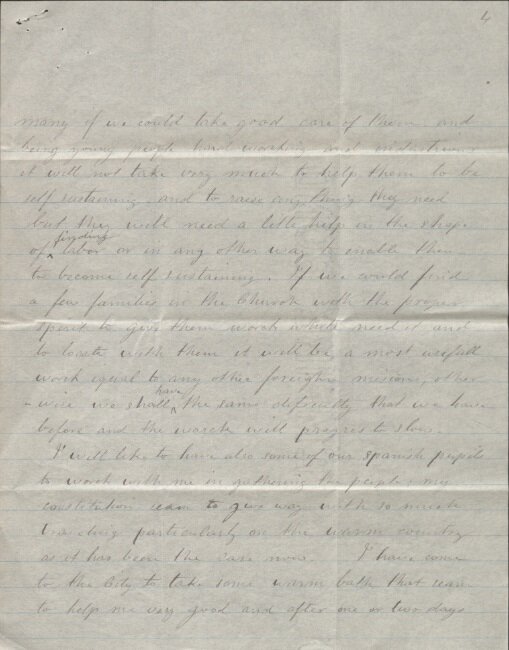 4
many if we could take good care of them and
being young people hard working and industrious
it will not take very much to help them to be
self sustaining and to raise any thing they need
but they will need a little help in the shape
of finding labor or in any other way to enable them
to become self sustaining. If we could find
a few families in the Church with the proper
spirit to give them work while need it and
to locate with them it will be a most usefull
work equal to any other foreighn mission, other
-wise we shall have the same deficulty that we have
before and the work will progres to slow.
I will like to have also some of our spanish pupils
to work with me in gathering the people my
constitution to give way with so much
traveling particularly on the warm country
as it has been the case now. I have come
to the City to take some warm bath that
to help me very good and after one or two days